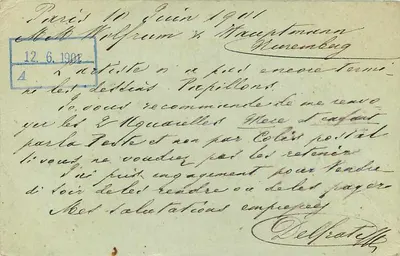 Paris 10 Juin 1901
M.M. Wolfrum & Hauptmann
Nuremberg
12. 6. 1901
A
L'artiste n a pas encore termi
ne les dessins Papillons.
Je vous recommande de me renvo
yer les 2 Aquarelles Mere et enfant
par la Poste et non par Colis postal
si vous ne voudrez pas les retenir
J'ai pris engagement pour Vendre
di soir de les rendre ou de les payer
Mes salutations empressées